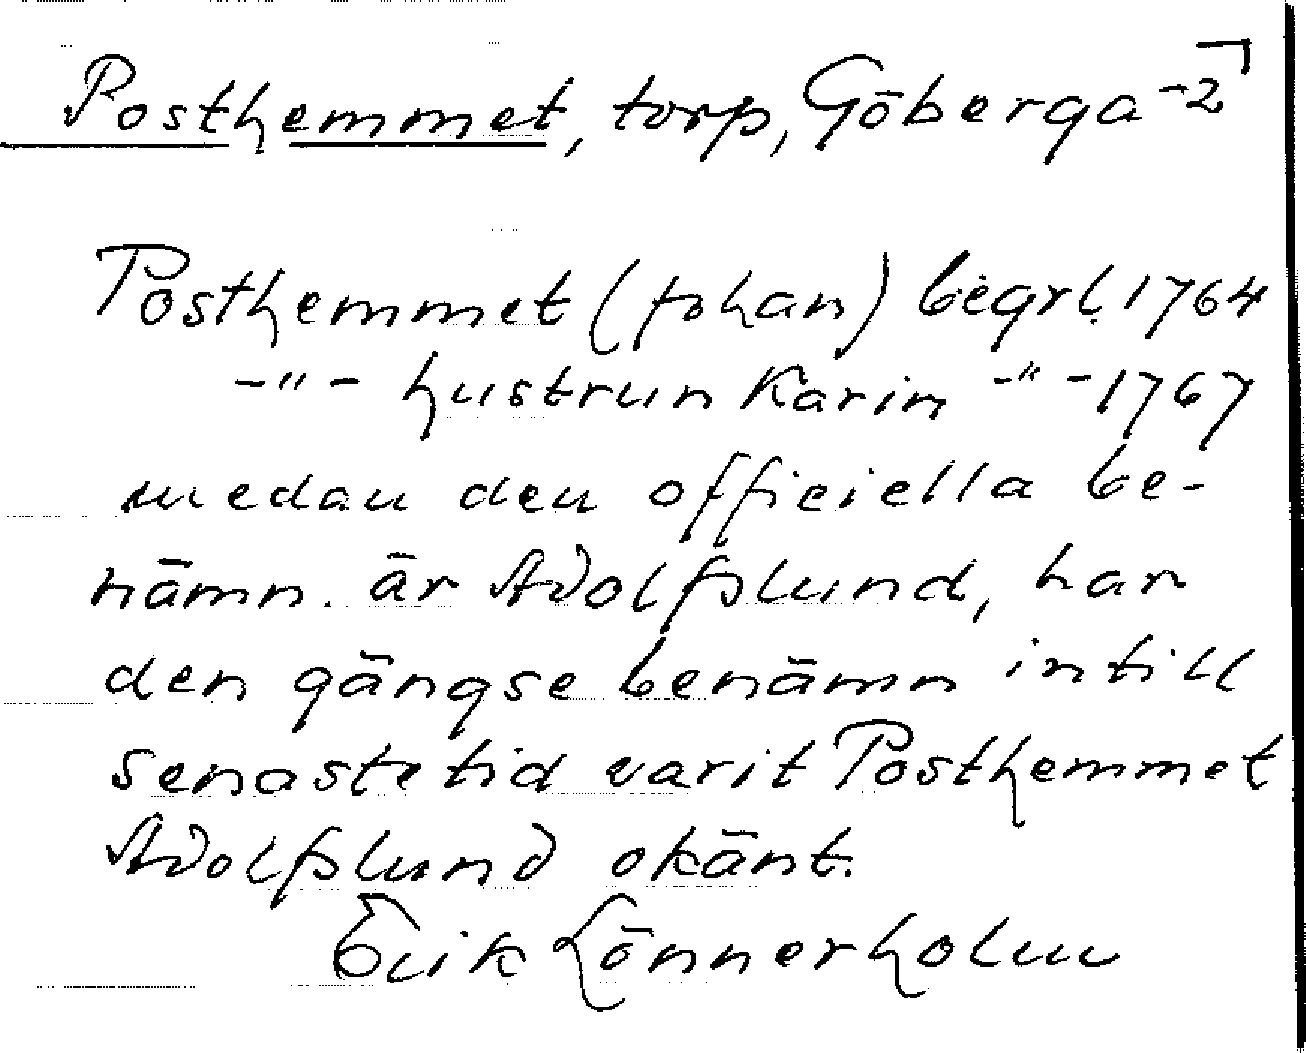 Posthemmet, torp, Göberga -2
Posthemmet (Johan) begrl. 1764
-"- hustrun Karin -"- 1767
medan den officiella be-
nämn. är Adolfslund, har
den gängse benämn intill
senaste tid varit Posthemmet
Adolfslund okänt.
Erik Lönnerholm